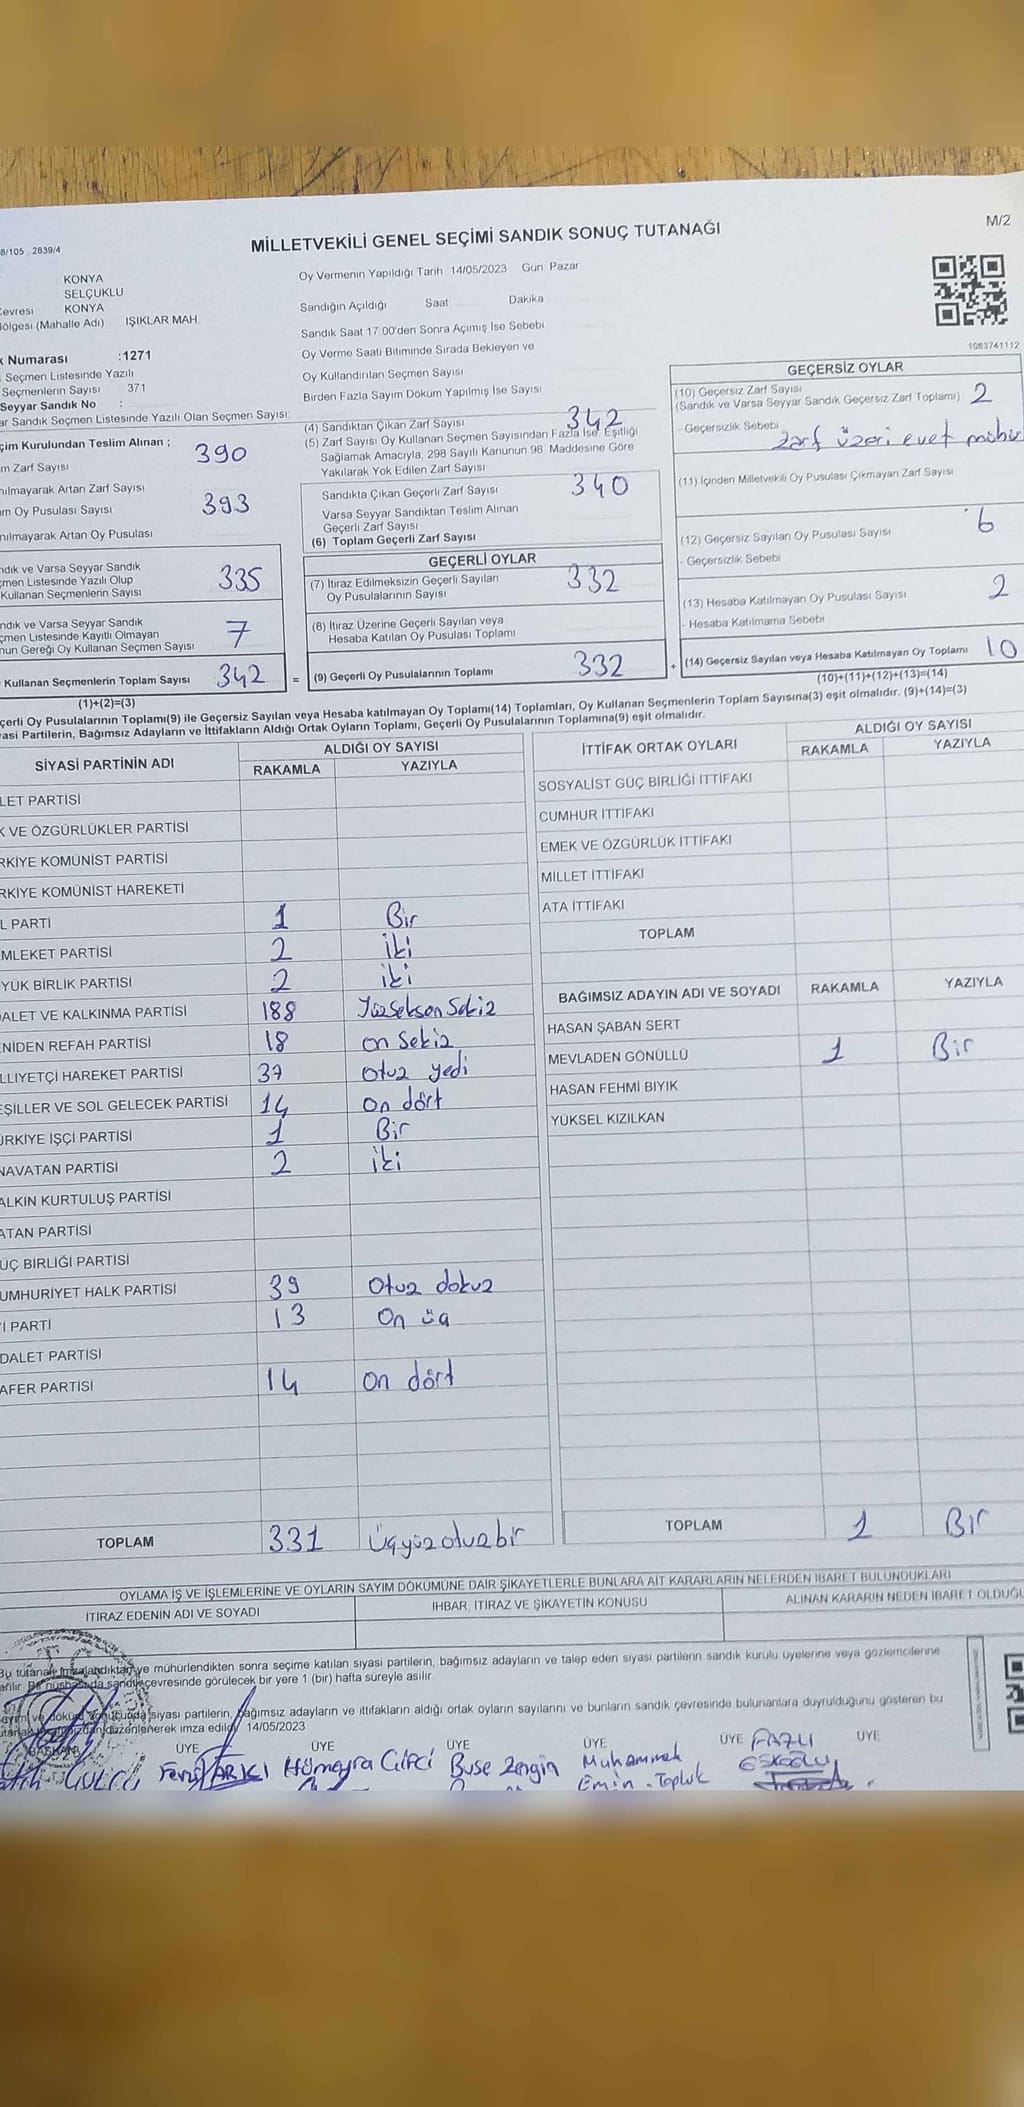 8/105 , 2839/4
MİLLETVEKİLİ GENEL SEÇİMİ SANDIK SONUÇ TUTANAĞI
M/2
KONYA
SELÇUKLU
KONYA
ölgesi (Mahalle Adı) IŞIKLAR MAH.
Numarası :1271
Seçmen Listesinde Yazılı
Seçmenlerin Sayısı 371
Seyyar Sandık No :
ar Sandık Seçmen Listesinde Yazılı Olan Seçmen Sayısı:
Oy Vermenin Yapıldığı Tarih 14/05/2023 Gün: Pazar
Sandığın Açıldığı Saat Dakika
Sandık Saat 17:00'den Sonra Açımış İse Sebebi
Oy Verme Saati Bitiminde Sırada Bekleyen ve
Oy Kullandırılan Seçmen Sayısı
Birden Fazla Sayım Döküm Yapılmış İse Sayısı
1083741112
çim Kurulundan Teslim Alınan ;
m Zarf Sayısı 390
nılmayarak Artan Zarf Sayısı
m Oy Pusulası Sayısı 393
nılmayarak Artan Oy Pusulası
ndık ve Varsa Seyyar Sandık
çmen Listesinde Yazılı Olup
Kullanan Seçmenlerin Sayısı 335
ndık ve Varsa Seyyar Sandık
çmen Listesinde Kayıtlı Olmayan
nun Gereği Oy Kullanan Seçmen Sayısı 7
Kullanan Seçmenlerin Toplam Sayısı 342
(1)+(2)=(3)
(4) Sandıktan Çıkan Zarf Sayısı 342
(5) Zarf Sayısı Oy Kullanan Seçmen Sayısından Fazla İse, Eşitliği
Sağlamak Amacıyla, 298 Sayılı Kanunun 98. Maddesine Göre
Yakılarak Yok Edilen Zarf Sayısı
Sandıkta Çıkan Geçerli Zarf Sayısı 340
Varsa Seyyar Sandıktan Teslim Alınan
Geçerli Zarf Sayısı
(6) Toplam Geçerli Zarf Sayısı
GEÇERLİ OYLAR
(7) İtiraz Edilmeksizin Geçerli Sayılan
Oy Pusulalarının Sayısı 332
(8) İtiraz Üzerine Geçerli Sayılan veya
Hesaba Katılan Oy Pusulası Toplamı
= (9) Geçerli Oy Pusulalarının Toplamı 332
GEÇERSİZ OYLAR
(10) Geçersiz Zarf Sayısı
(Sandık ve Varsa Seyyar Sandık Geçersiz Zarf Toplamı) 2
- Geçersizlik Sebebi
Zarf üzeri evet mühür
(11) İçinden Milletvekili Oy Pusulası Çıkmayan Zarf Sayısı
(12) Geçersiz Sayılan Oy Pusulası Sayısı 6
- Geçersizlik Sebebi
(13) Hesaba Katılmayan Oy Pusulası Sayısı 2
- Hesaba Katılmama Sebebi
+ (14) Geçersiz Sayılan veya Hesaba Katılmayan Oy Toplamı 10
(10)+(11)+(12)+(13)=(14)
çerli Oy Pusulalarının Toplamı(9) ile Geçersiz Sayılan veya Hesaba katılmayan Oy Toplamı(14) Toplamları, Oy Kullanan Seçmenlerin Toplam Sayısına(3) eşit olmalıdır. (9)+(14)=(3)
yasi Partilerin, Bağımsız Adayların ve İttifakların Aldığı Ortak Oyların Toplamı, Geçerli Oy Pusulalarının Toplamına(9) eşit olmalıdır.
SİYASİ PARTİNİN ADI
ALDIĞI OY SAYISI
RAKAMLA YAZIYLA
LET PARTİSİ
K VE ÖZGÜRLÜKLER PARTİSİ
RKİYE KOMÜNİST PARTİSİ
RKİYE KOMÜNİST HAREKETİ
L PARTİ 1 Bir
MLEKET PARTİSİ 2 iki
YÜK BİRLİK PARTİSİ 2 iki
ALET VE KALKINMA PARTİSİ 188 Yüzseksen Sekiz
NİDEN REFAH PARTİSİ 18 on Sekiz
LLİYETÇİ HAREKET PARTİSİ 37 otuz yedi
EŞİLLER VE SOL GELECEK PARTİSİ 14 on dört
ÜRKİYE İŞÇİ PARTİSİ 1 Bir
NAVATAN PARTİSİ 2 iki
ALKIN KURTULUŞ PARTİSİ
ATAN PARTİSİ
ÜÇ BİRLİĞİ PARTİSİ
UMHURİYET HALK PARTİSİ 39 Otuz dokuz
İ PARTİ 13 On üç
DALET PARTİSİ
AFER PARTİSİ 14 on dört
TOPLAM 331 Üçyüz otuz bir
İTTİFAK ORTAK OYLARI
ALDIĞI OY SAYISI
RAKAMLA YAZIYLA
SOSYALİST GÜÇ BİRLİĞİ İTTİFAKI
CUMHUR İTTİFAKI
EMEK VE ÖZGÜRLÜK İTTİFAKI
MİLLET İTTİFAKI
ATA İTTİFAKI
TOPLAM
BAĞIMSIZ ADAYIN ADI VE SOYADI RAKAMLA YAZIYLA
HASAN ŞABAN SERT
MEVLADEN GÖNÜLLÜ 1 Bir
HASAN FEHMİ BIYIK
YÜKSEL KIZILKAN
TOPLAM 1 Bir
OYLAMA İŞ VE İŞLEMLERİNE VE OYLARIN SAYIM DÖKÜMÜNE DAİR ŞİKAYETLERLE BUNLARA AİT KARARLARIN NELERDEN İBARET BULUNDUKLARI
İTİRAZ EDENİN ADI VE SOYADI
İHBAR, İTİRAZ VE ŞİKAYETİN KONUSU
ALINAN KARARIN NEDEN İBARET OLDUĞU
Bu tutanak imzalandıktan ve mühürlendikten sonra seçime katılan siyasi partilerin, bağımsız adayların ve talep eden siyasi partilerin sandık kurulu üyelerine veya gözlemcilerine
erilir. Bir nüshası da sandık çevresinde görülecek bir yere 1 (bir) hafta süreyle asılır.
siyasi partilerin, bağımsız adayların ve ittifakların aldığı ortak oyların sayılarını ve bunların sandık çevresinde bulunanlara duyrulduğunu gösteren bu
düzenlenerek imza edildi. 14/05/2023
BAŞKAN ÜYE ÜYE ÜYE ÜYE ÜYE ÜYE
Hümeyra Çifçi Buse Zengin Muhammek FAZLI
Emin